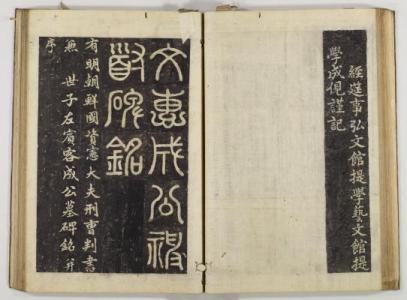 經筵事弘文館提學藝文館提
學成俔謹記
文惠成公神
道碑銘
有明朝鮮國資憲大夫刑曹判書
兼 世子左賓客成公墓碑銘并
序